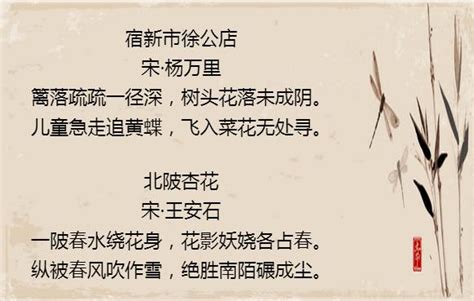 宿新市徐公店
宋·杨万里
篱落疏疏一径深，树头花落未成阴。
儿童急走追黄蝶，飞入菜花无处寻。
北陂杏花
宋·王安石
一陂春水绕花身，花影妖娆各占春。
纵被春风吹作雪，绝胜南陌碾成尘。